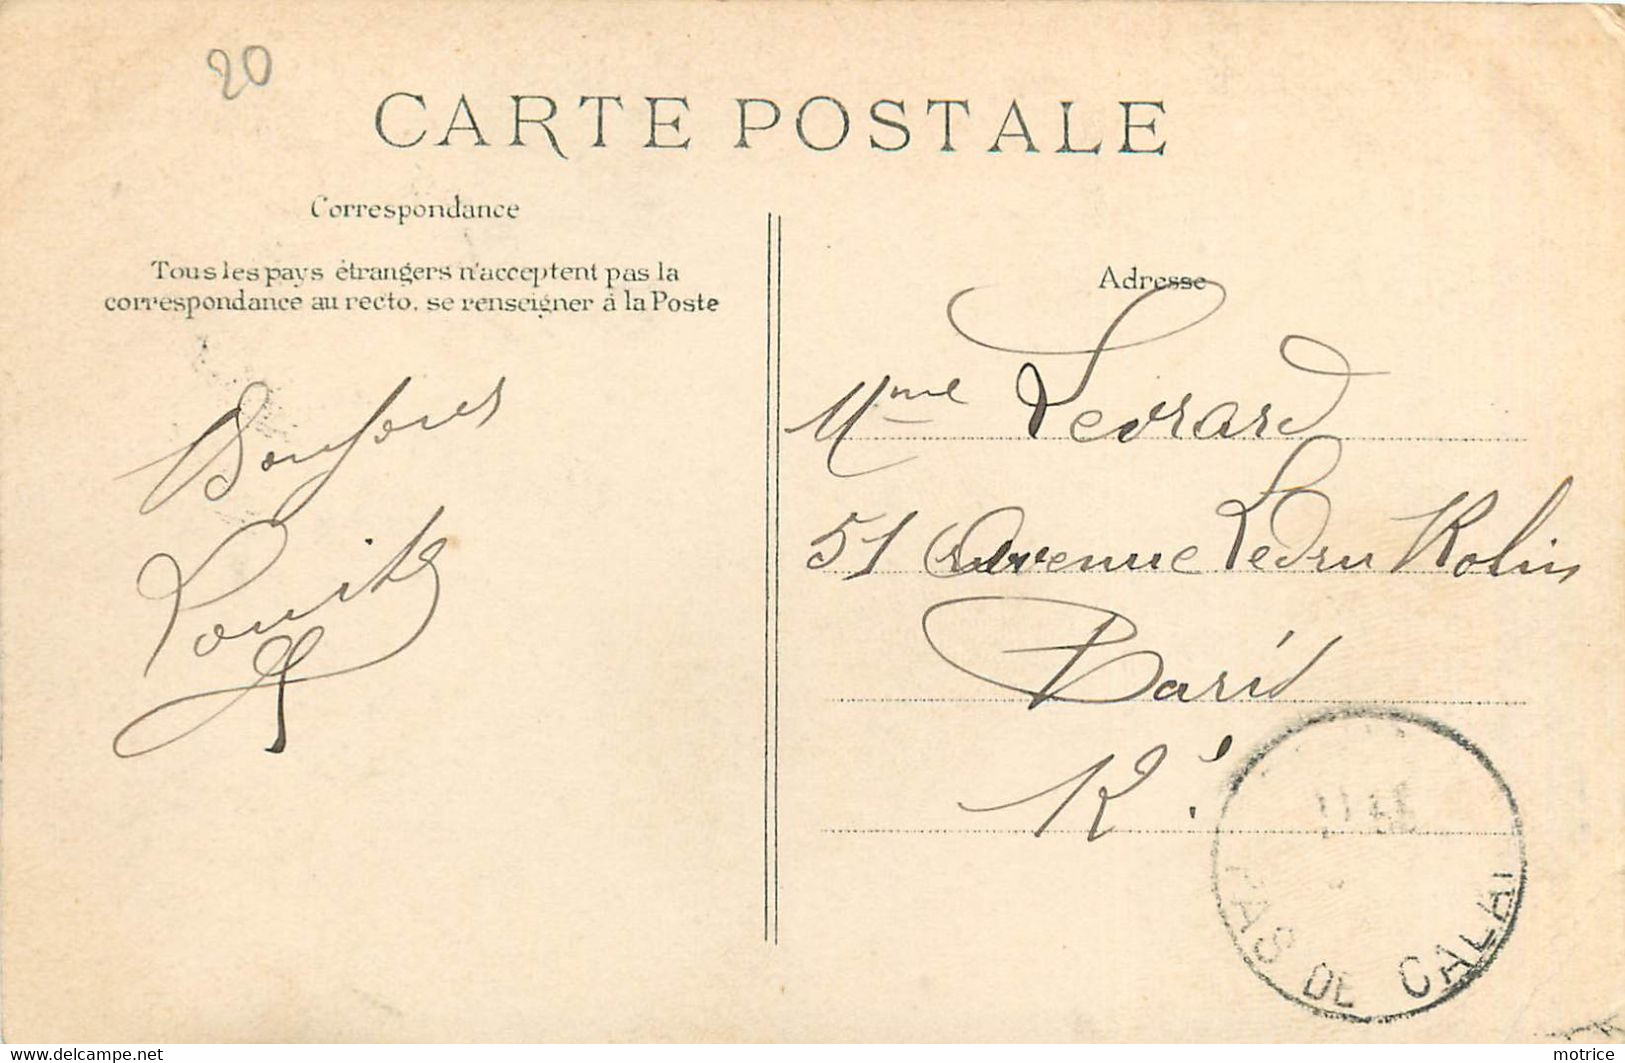 20
CARTE POSTALE
Correspondance
Tous les pays étrangers n'acceptent pas la
correspondance au recto, se renseigner à la Poste
Adresse
Mme Levrard
51 Avenue Ledru Rolin
Paris
PAS DE CALAI
www.delcampe.net
motrice